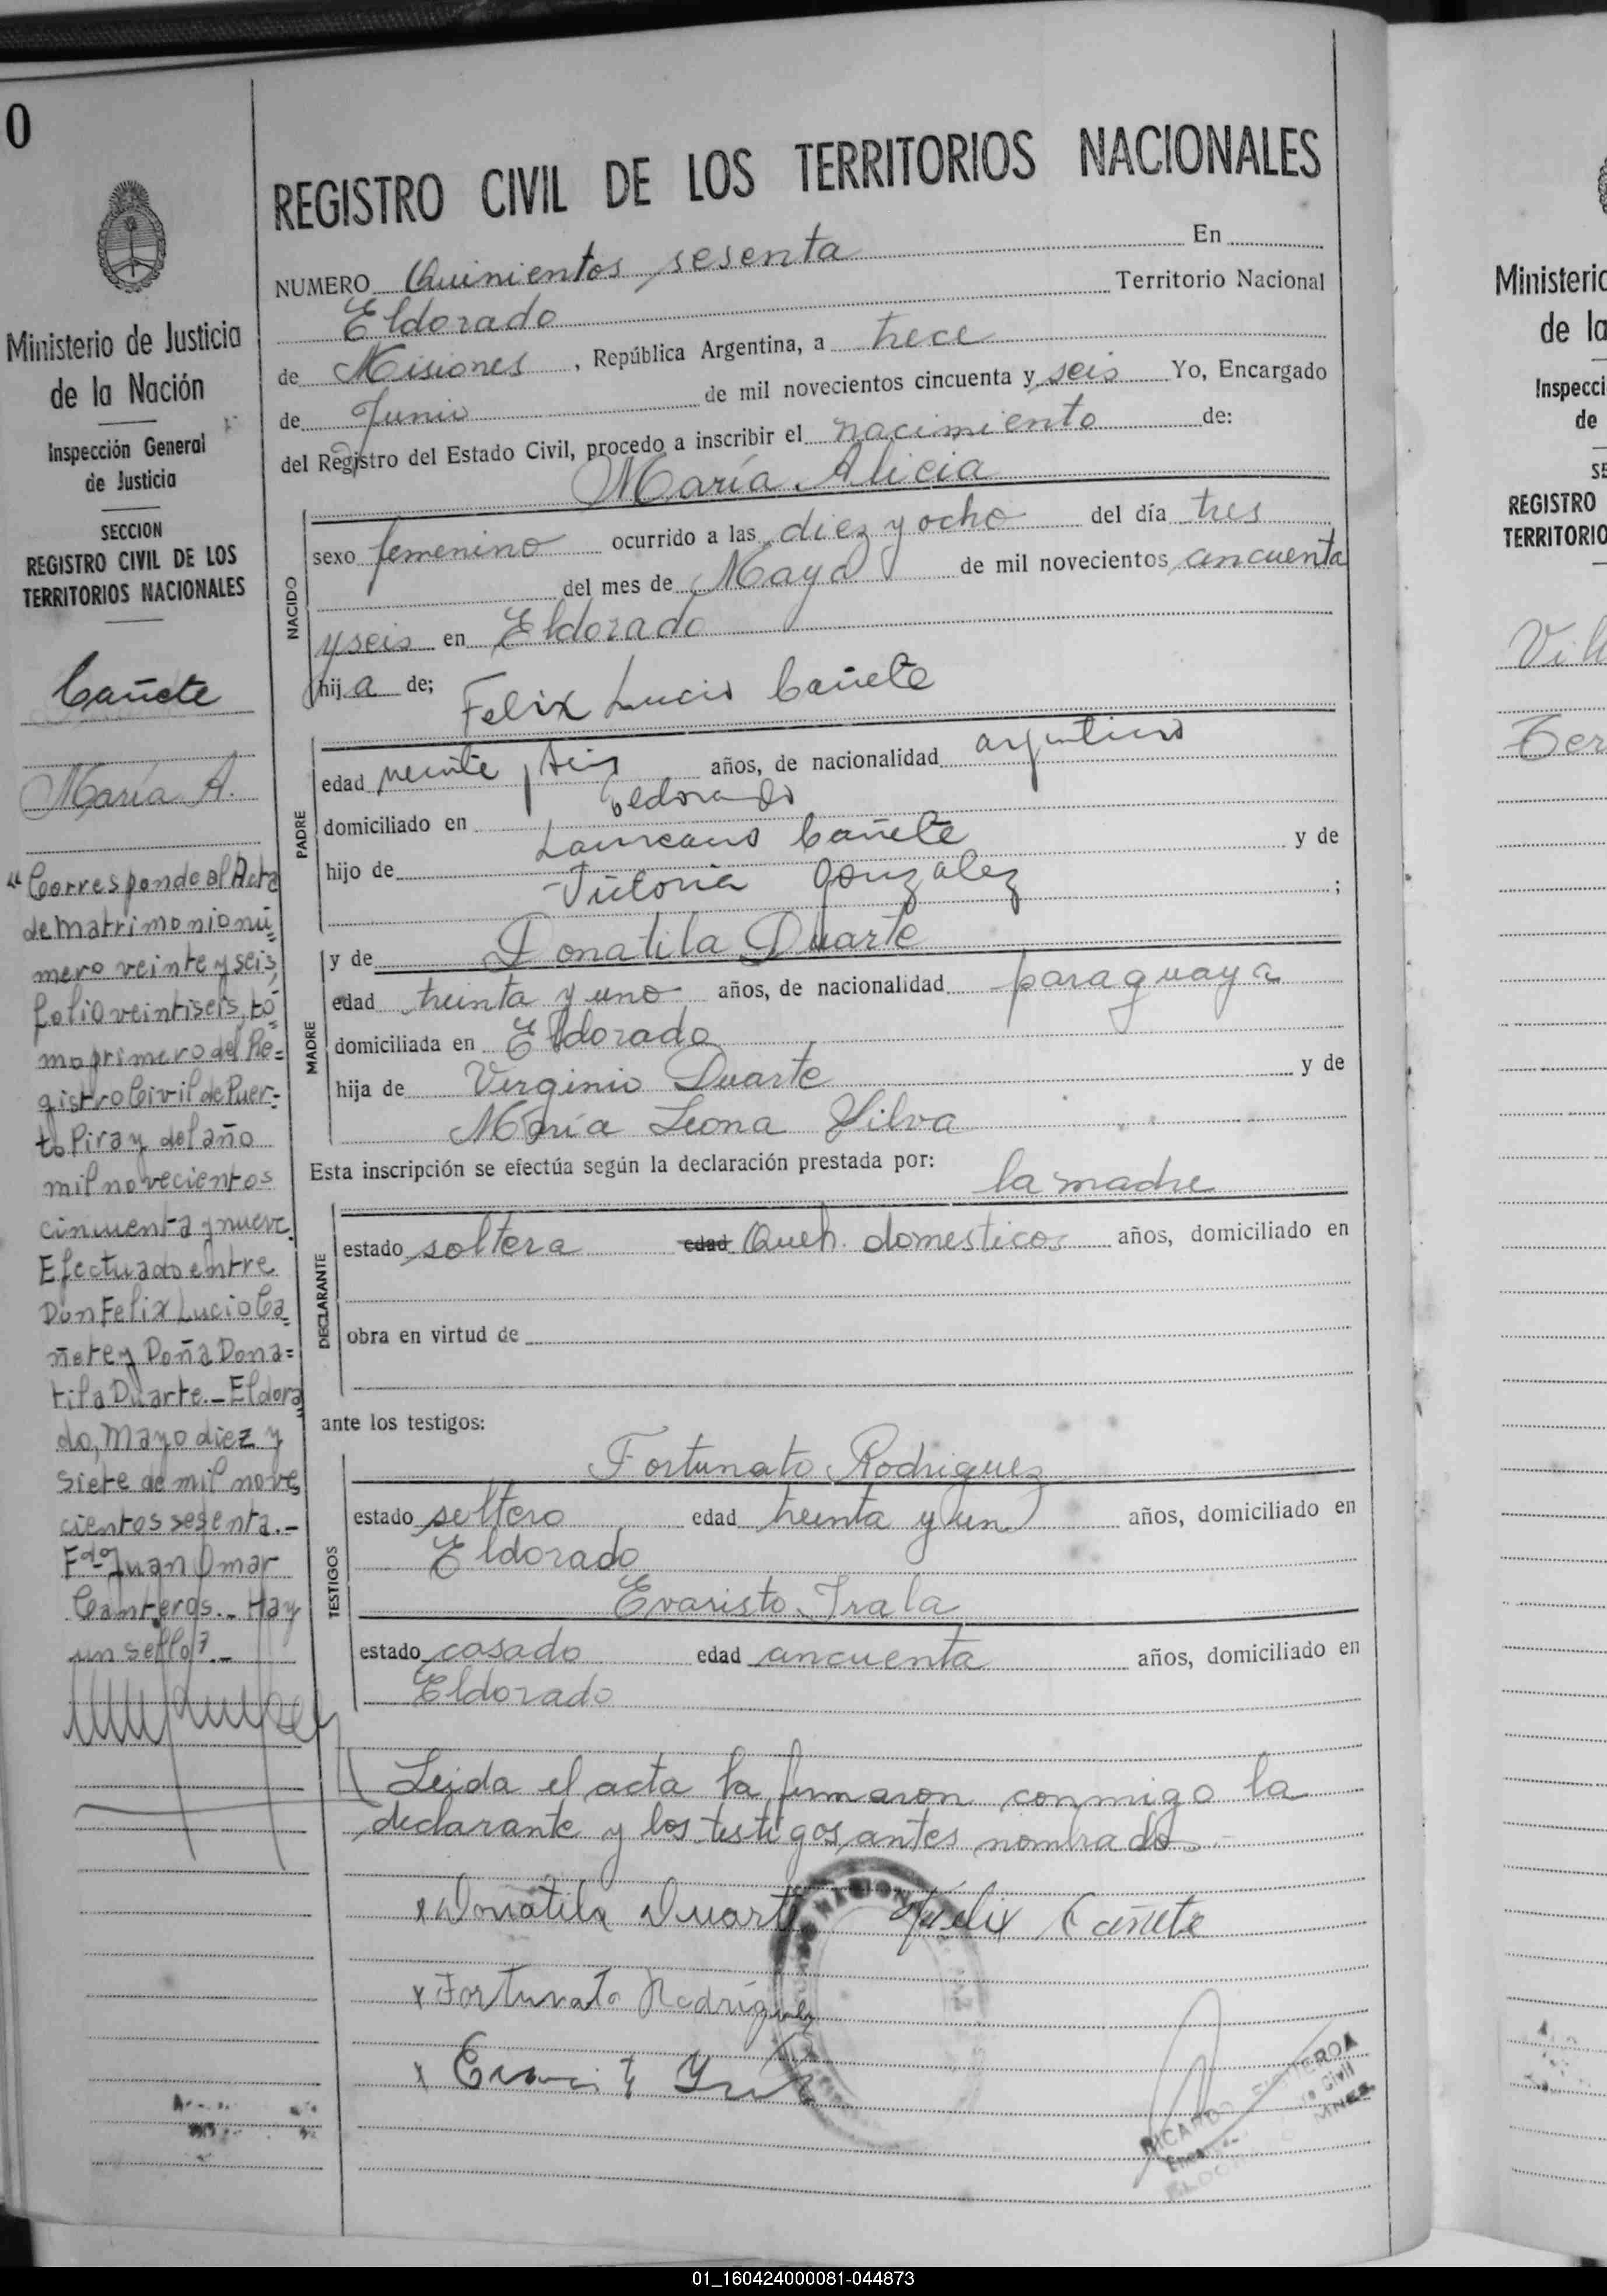 0
Ministerio de Justicia
de la Nación
Inspección General
de Justicia
SECCION
REGISTRO CIVIL DE LOS
TERRITORIOS NACIONALES
Cañete
María A.
"Corresponde al Acta
de matrimonio nú=
mero veinte y seis,
folio veintiseis, to=
mo primero del Re=
gistro Civil de Puer=
to Piray del año
mil novecientos
cincuenta y nueve.
Efectuado entre
Don Felix Lucio Ca=
ñete y Doña Dona=
tila Duarte._ Eldora=
do, Mayo diez y
siete de mil nove=
cientos sesenta.-
Fdo Juan Omar
Canteros._ Hay
un sello"._
REGISTRO CIVIL DE LOS TERRITORIOS NACIONALES
NUMERO Quinientos sesenta En
Eldorado Territorio Nacional
de Misiones, República Argentina, a trece
de Junio de mil novecientos cincuenta y seis Yo, Encargado
del Registro del Estado Civil, procedo a inscribir el nacimiento de:
María Alicia
NACIDO
sexo femenino ocurrido a las diez y ocho del día tres
del mes de Mayo de mil novecientos cincuenta
y seis en Eldorado
hija de; Felix Lucio Cañete
PADRE
edad veinte y seis años, de nacionalidad argentino
domiciliado en Eldorado
hijo de Laureano Cañete y de
Victoria Gonzalez ;
MADRE
y de Donatila Duarte
edad treinta y uno años, de nacionalidad paraguaya
domiciliada en Eldorado
hija de Virginio Duarte y de
María Leona Silva
Esta inscripción se efectúa según la declaración prestada por:
la madre
DECLARANTE
estado soltera edad Queh. domesticos años, domiciliado en
obra en virtud de
ante los testigos:
TESTIGOS
Fortunato Rodriguez
estado soltero edad treinta y un años, domiciliado en
Eldorado
Evaristo Irala
estado casado edad cincuenta años, domiciliado en
Eldorado
Leida el acta la firmaron conmigo la
declarante y los testigos antes nombrado
x Donatila Duarte Felix Cañete
x Fortunato Rodriguez
x
RICARDO FIGUEROA
Civil
MNES.
Ministerio
de la
Inspecci
de
SE
REGISTRO
TERRITORIO
01_160424000081-044873